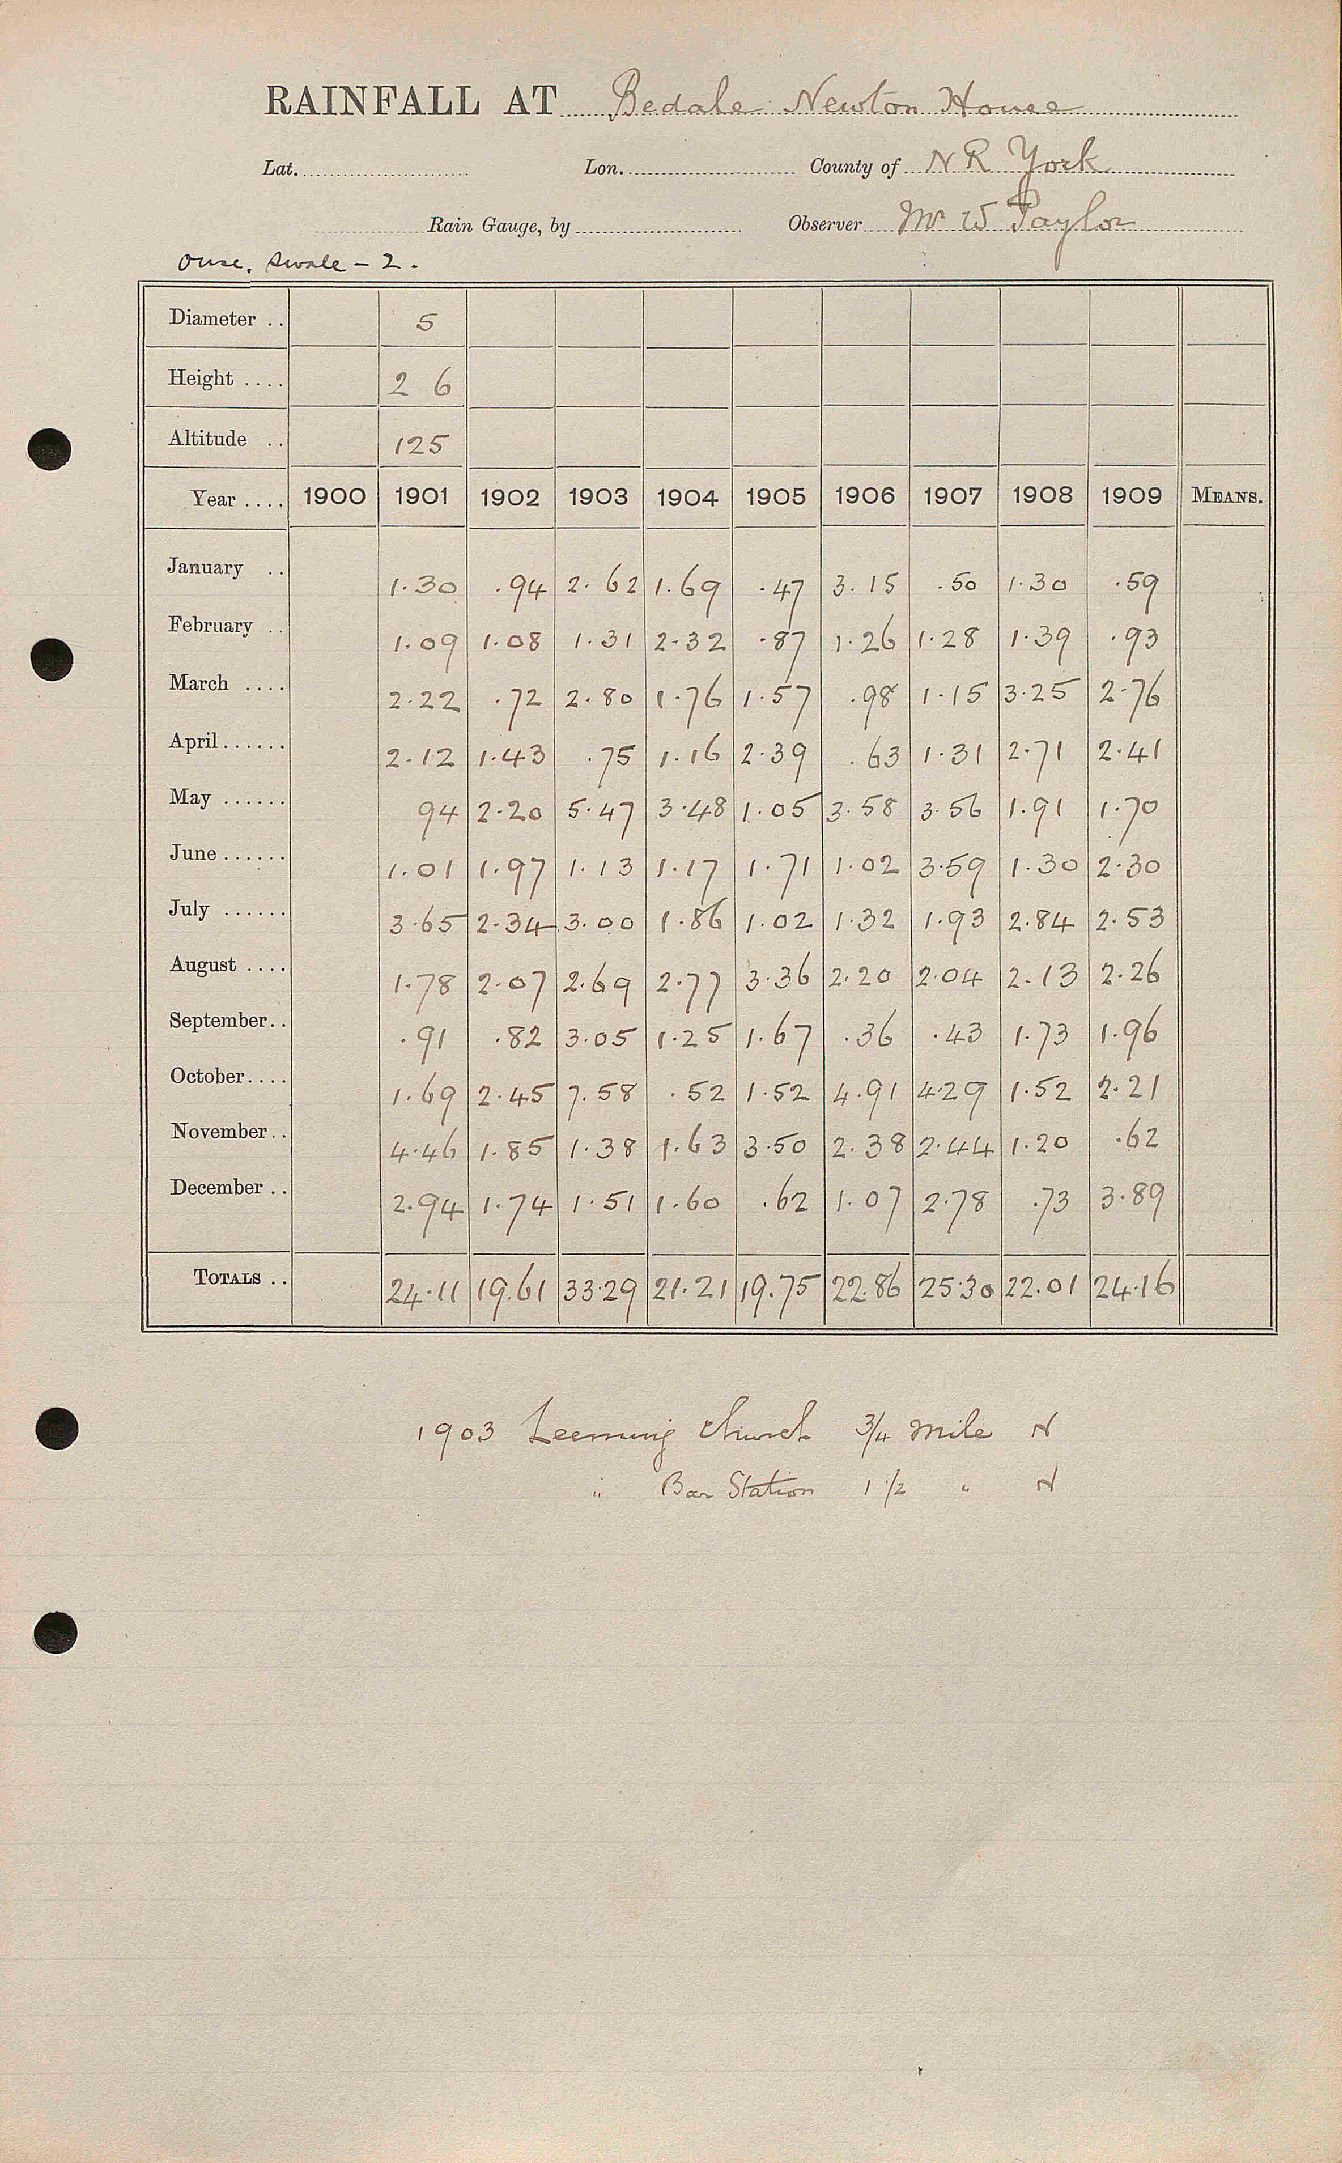 RAINFALL AT Bedale Newton House
Lat. Lon. County of N R York
Rain Gauge, by Observer Mr W Taylor
Ouse, Swale - 2.
Diameter .. 5
Height .... 2 6
Altitude .. 125
Year .... 1900 1901 1902 1903 1904 1905 1906 1907 1908 1909 MEANS.
January .. 1.30 .94 2.62 1.69 .47 3.15 .50 1.30 .59
February .. 1.09 1.08 1.31 2.32 .87 1.26 1.28 1.39 .93
March .... 2.22 .72 2.80 1.76 1.57 .98 1.15 3.25 2.76
April...... 2.12 1.43 .75 1.16 2.39 .63 1.31 2.71 2.41
May ...... 94 2.20 5.47 3.48 1.05 3.58 3.56 1.91 1.70
June...... 1.01 1.97 1.13 1.17 1.71 1.02 3.59 1.30 2.30
July ...... 3.65 2.34 3.00 1.86 1.02 1.32 1.93 2.84 2.53
August .... 1.78 2.07 2.69 2.77 3.36 2.20 2.04 2.13 2.26
September.. .91 .82 3.05 1.25 1.67 .36 .43 1.73 1.96
October.... 1.69 2.45 7.58 .52 1.52 4.91 4.29 1.52 2.21
November.. 4.46 1.85 1.38 1.63 3.50 2.38 2.44 1.20 .62
December .. 2.94 1.74 1.51 1.60 .62 1.07 2.78 .73 3.89
TOTALS .. 24.11 19.61 33.29 21.21 19.75 22.86 25.30 22.01 24.16
1903 Leeming Church 3/4 mile N
" Bar Station 1 1/2 " N